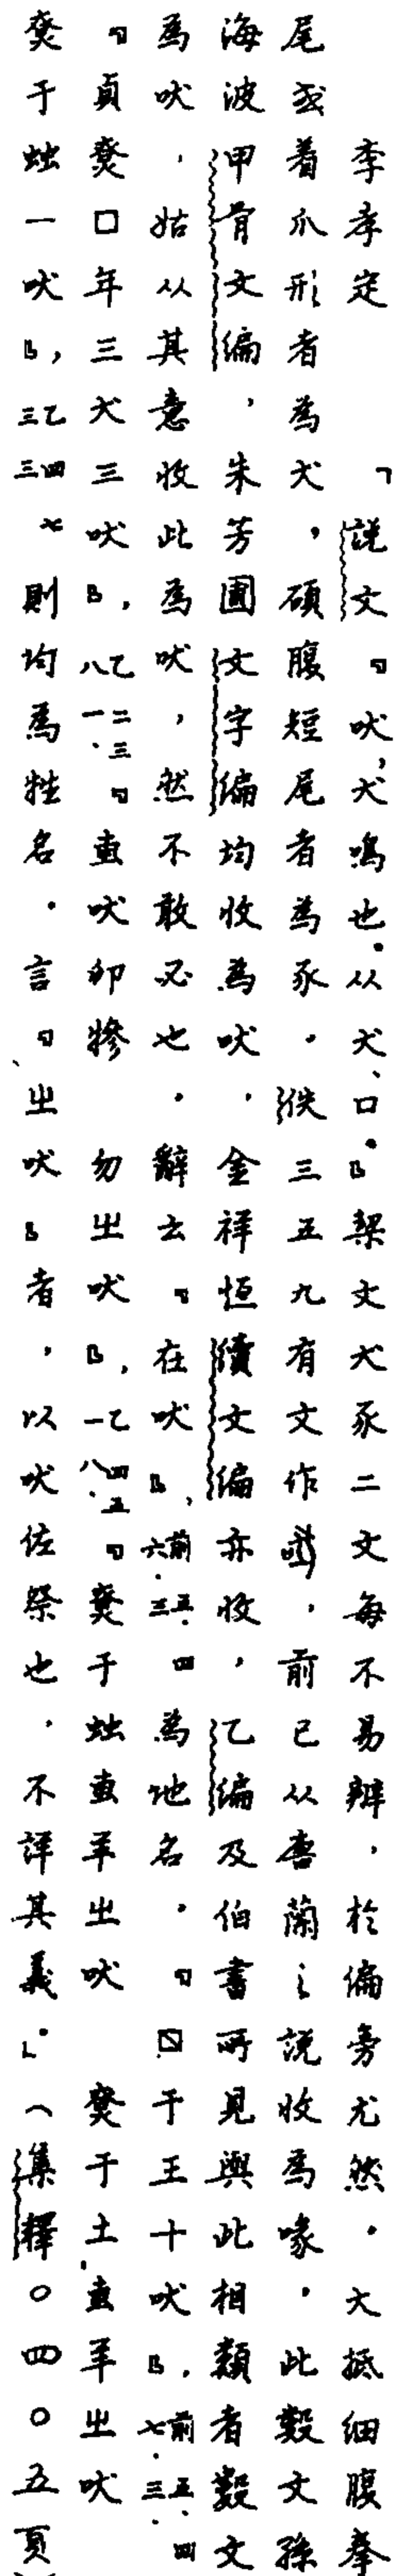 李孝定　「說文『吠，犬鳴也。从犬、口。』栔文犬豕二文每不易辨，於偏旁尤然。大抵細腹拳
尾或着爪形者為犬，碩腹短尾者為豕。佚三五九有文作，前已从唐蘭之說收為喙，此數文孫
海波甲骨文編，朱芳圃文字編均收為吠，金祥恒續文編亦收，乙編及伯書所見與此相類者數文
為吠，姑从其意收此為吠，然不敢必也。辭云『在吠』，前六·三五·四為地名。『☒于王十吠』，前七·三五·四
『貞尞□年三犬三吠』，乙八一二·三『叀吠卯㹊 勿㞢吠』，乙一八四五、『尞于䖵叀羊㞢吠 尞于土叀羊㞢吠
尞于䖵一吠』，乙三三四七則均為牲名。言『㞢吠』者，以吠佐祭也，不詳其義」。（集釋〇四〇五頁